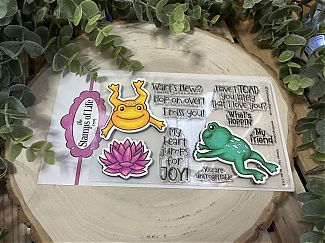 The
Stamps of Life
Wart's New?
Hop on over!
I miss you!
My
heart
jumps
for
JOY!
Have I TOAD
you lately
that I love you?
What's
HOPPIN'
My
friend!
You are